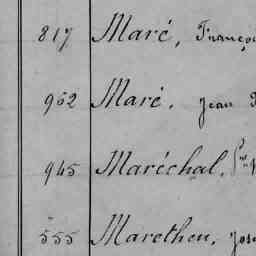 817 Maré, Franço
962 Maré, Jean
945 Maréchal,
555 Maretheu, Jose